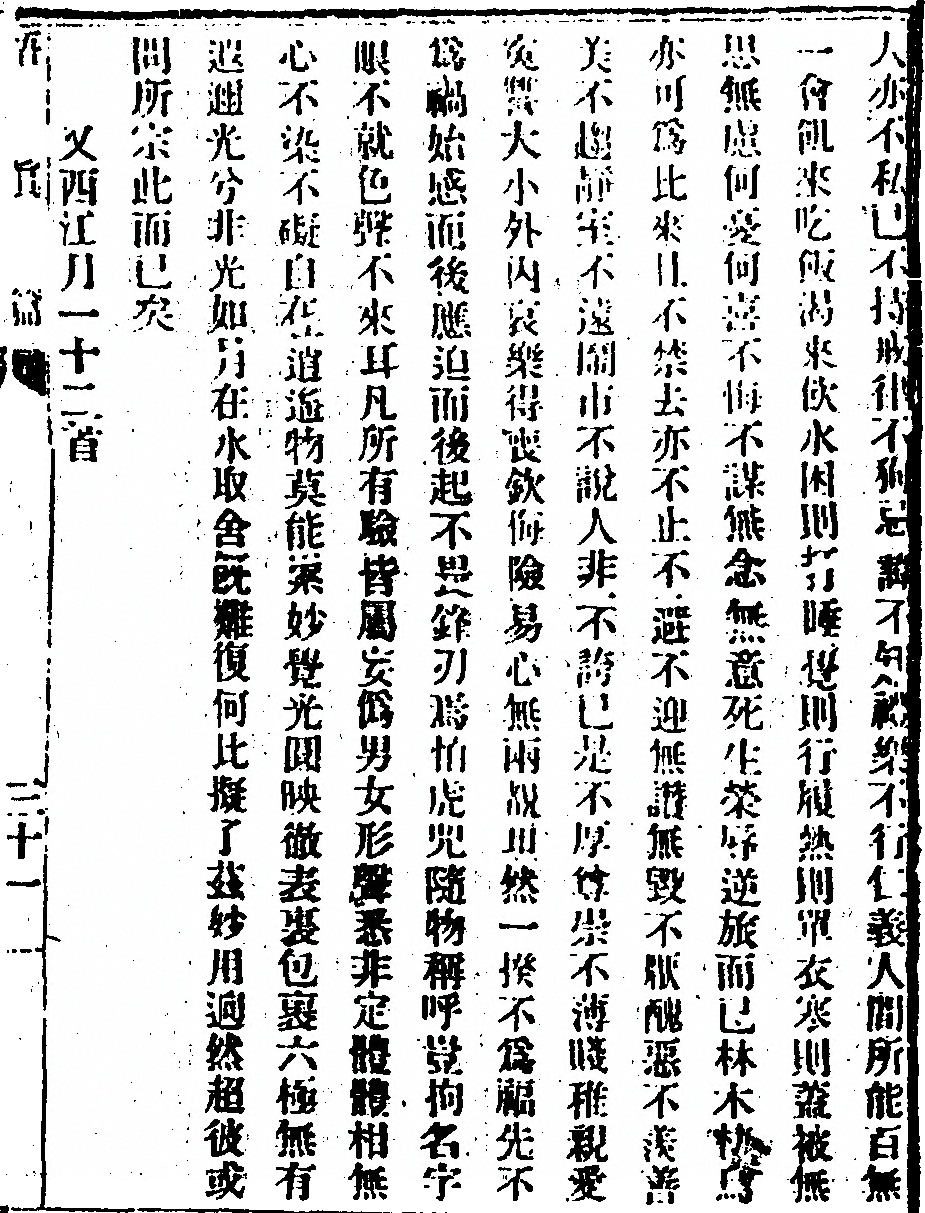 人亦不私已不持戒律不狥忌諱不行禮樂不行仁義人間所能百無
一會飢來吃飯渴來飲水困則打睡覺則行履熱則單衣寒則蓋被無
思無慮何憂何喜不悔不謀無念無意死生榮辱逆旅而已林木栖鳥
亦可爲比來且不禁去亦不止不避不迎無讚無毀不厭醜惡不羨善
美不趨靜室不遠鬧市不說人非不誇已是不厚尊崇不薄賤稚親愛
寃讐大小外內哀樂得喪欽侮險易心無兩覩坦然一揆不爲福先不
爲禍始感而後應迫而後起不畏鋒刃焉怕虎兕隨物稱呼豈拘名字
眼不就色聲不來耳凡所有驗皆屬妄僞男女形聲悉非定體體相無
心不染不礙自在逍遙物莫能累妙覺光圓映徹表裏包裹六極無有
遐邇光兮非光如月在水取舍旣難復何比擬了茲妙用逈然超彼或
問所宗此而已矣
又西江月一十二首
吞 真 篇
三十一